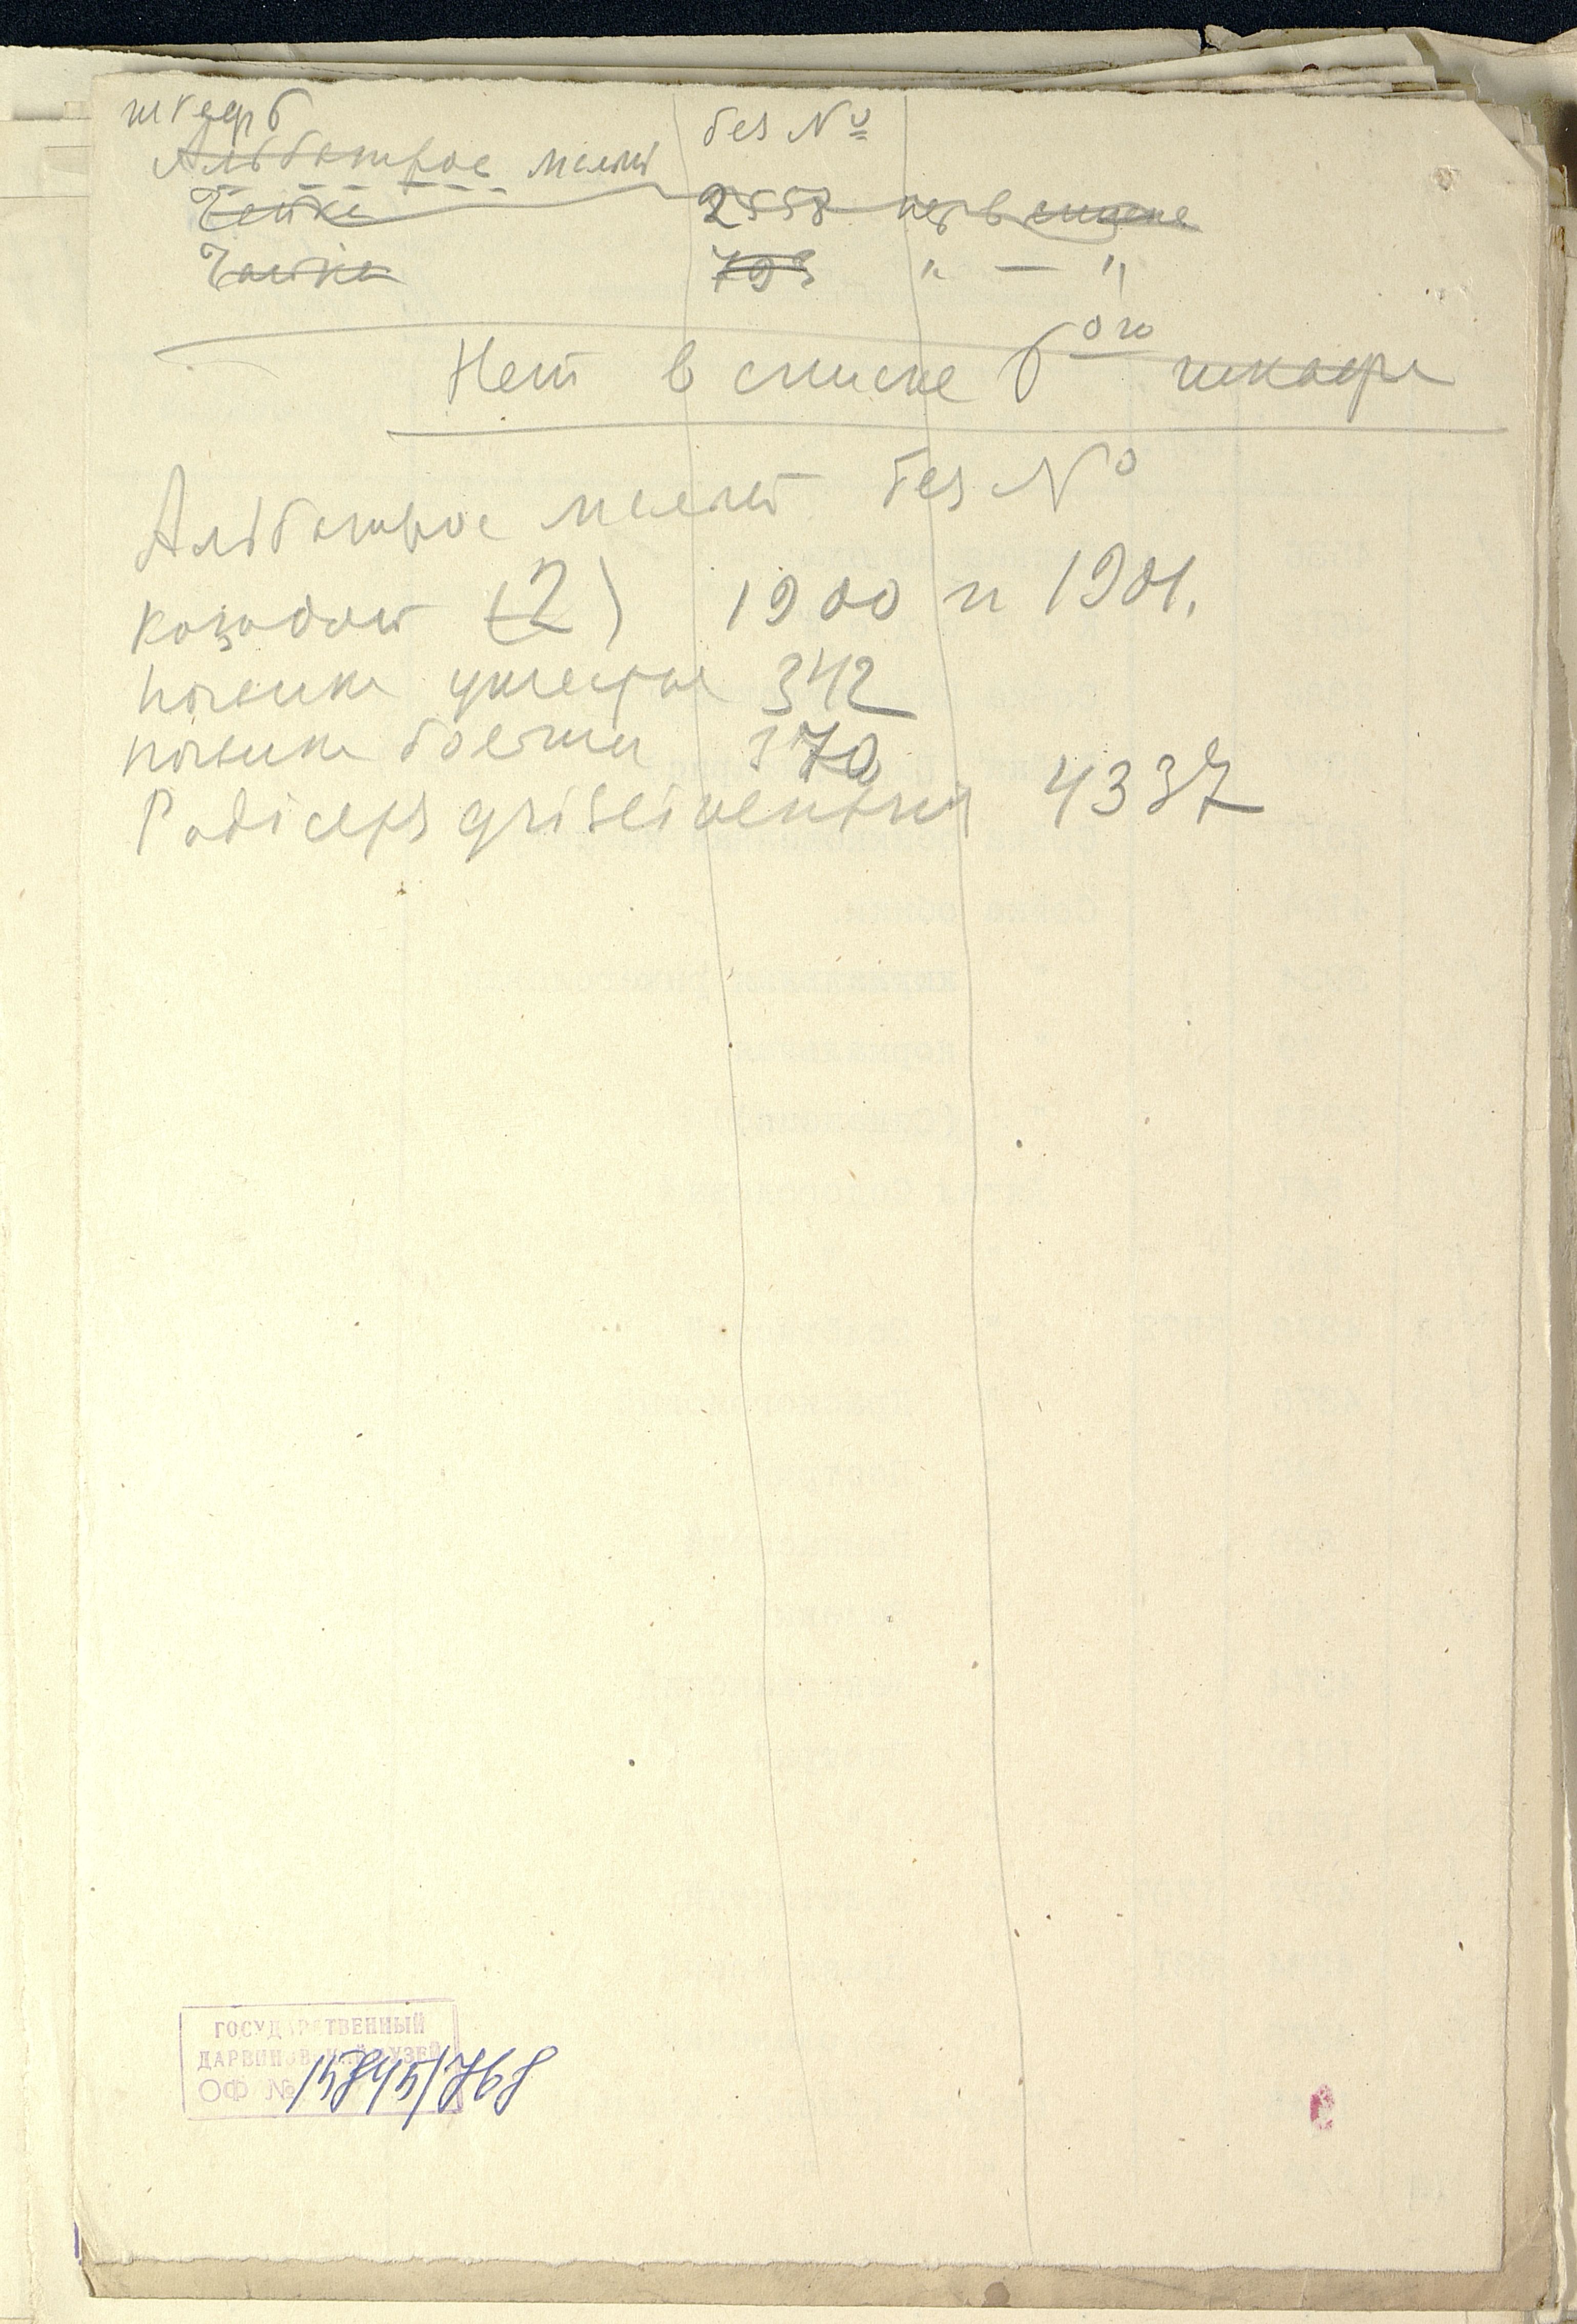 шкаф 6
Альбатрос малый без №
Чайка 2558 нет в списке
Чайка 793 " — "
Нет в списке 6ого шкафа
Альбатрос малый без №
козодой (2) 1900 и 1901.
поганка ушастая 342
поганка 370
Podiceps griseiventris 4337
ГОСУДАРСТВЕННЫЙ
ДАРВИНОВСКИЙ МУЗЕЙ
ОФ № 15845/768